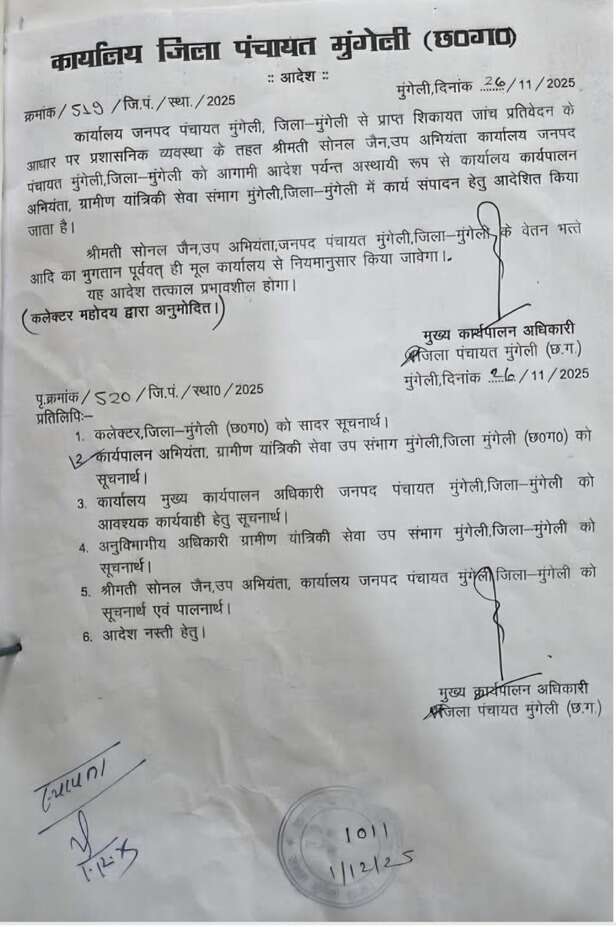 कार्यालय जिला पंचायत मुंगेली (छ0ग0)
:: आदेश ::
क्रमांक/519/जि.पं./स्था./2025
मुंगेली,दिनांक 26/11/2025
कार्यालय जनपद पंचायत मुंगेली, जिला–मुंगेली से प्राप्त शिकायत जांच प्रतिवेदन के
आधार पर प्रशासनिक व्यवस्था के तहत श्रीमती सोनल जैन,उप अभियंता कार्यालय जनपद
पंचायत मुंगेली,जिला–मुंगेली को आगामी आदेश पर्यन्त अस्थायी रूप से कार्यालय कार्यपालन
अभियंता, ग्रामीण यांत्रिकी सेवा संभाग मुंगेली,जिला–मुंगेली में कार्य संपादन हेतु आदेशित किया
जाता है।
श्रीमती सोनल जैन,उप अभियंता,जनपद पंचायत मुंगेली,जिला–मुंगेली के वेतन भत्ते
आदि का भुगतान पूर्ववत् ही मूल कार्यालय से नियमानुसार किया जावेगा।
यह आदेश तत्काल प्रभावशील होगा।
(कलेक्टर महोदय द्वारा अनुमोदित।)
मुख्य कार्यपालन अधिकारी
जिला पंचायत मुंगेली (छ.ग.)
मुंगेली,दिनांक 26/11/2025
पृ.क्रमांक/520/जि.पं./स्था0/2025
प्रतिलिपिः–
1. कलेक्टर,जिला–मुंगेली (छ0ग0) को सादर सूचनार्थ।
2. कार्यपालन अभियंता, ग्रामीण यांत्रिकी सेवा उप संभाग मुंगेली,जिला मुंगेली (छ0ग0) को
सूचनार्थ।
3. कार्यालय मुख्य कार्यपालन अधिकारी जनपद पंचायत मुंगेली,जिला–मुंगेली को
आवश्यक कार्यवाही हेतु सूचनार्थ।
4. अनुविभागीय अधिकारी ग्रामीण यांत्रिकी सेवा उप संभाग मुंगेली,जिला–मुंगेली को
सूचनार्थ।
5. श्रीमती सोनल जैन,उप अभियंता, कार्यालय जनपद पंचायत मुंगेली,जिला–मुंगेली को
सूचनार्थ एवं पालनार्थ।
6. आदेश नस्ती हेतु।
मुख्य कार्यपालन अधिकारी
जिला पंचायत मुंगेली (छ.ग.)
स्थापना
1011
1/12/25